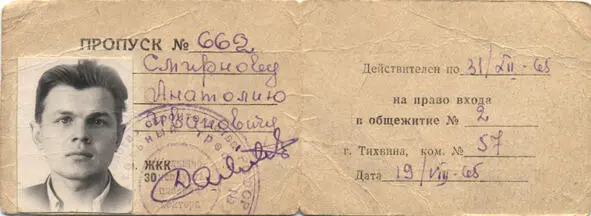 ПРОПУСК № 662
Смирнову
Анатолию
Ивановичу
ЖКК
Действителен по 31/XII-65
на право входа
в общежитие № 2
г. Тихвина, ком. № 57
Дата 19/VIII-65